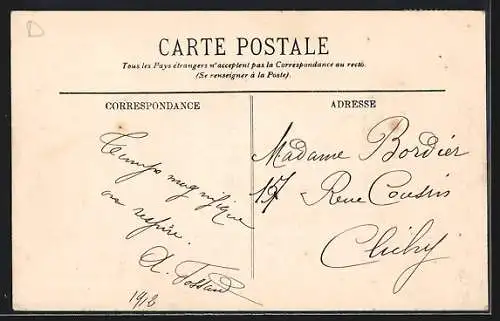 D
CARTE POSTALE
Tous les Pays étrangers n'acceptent pas la Correspondance au recto.
(Se renseigner à la Poste).
CORRESPONDANCE
Temps magnifique
on respire.
A.
1912
ADRESSE
Madame Bordier
157 Rue
Clichy